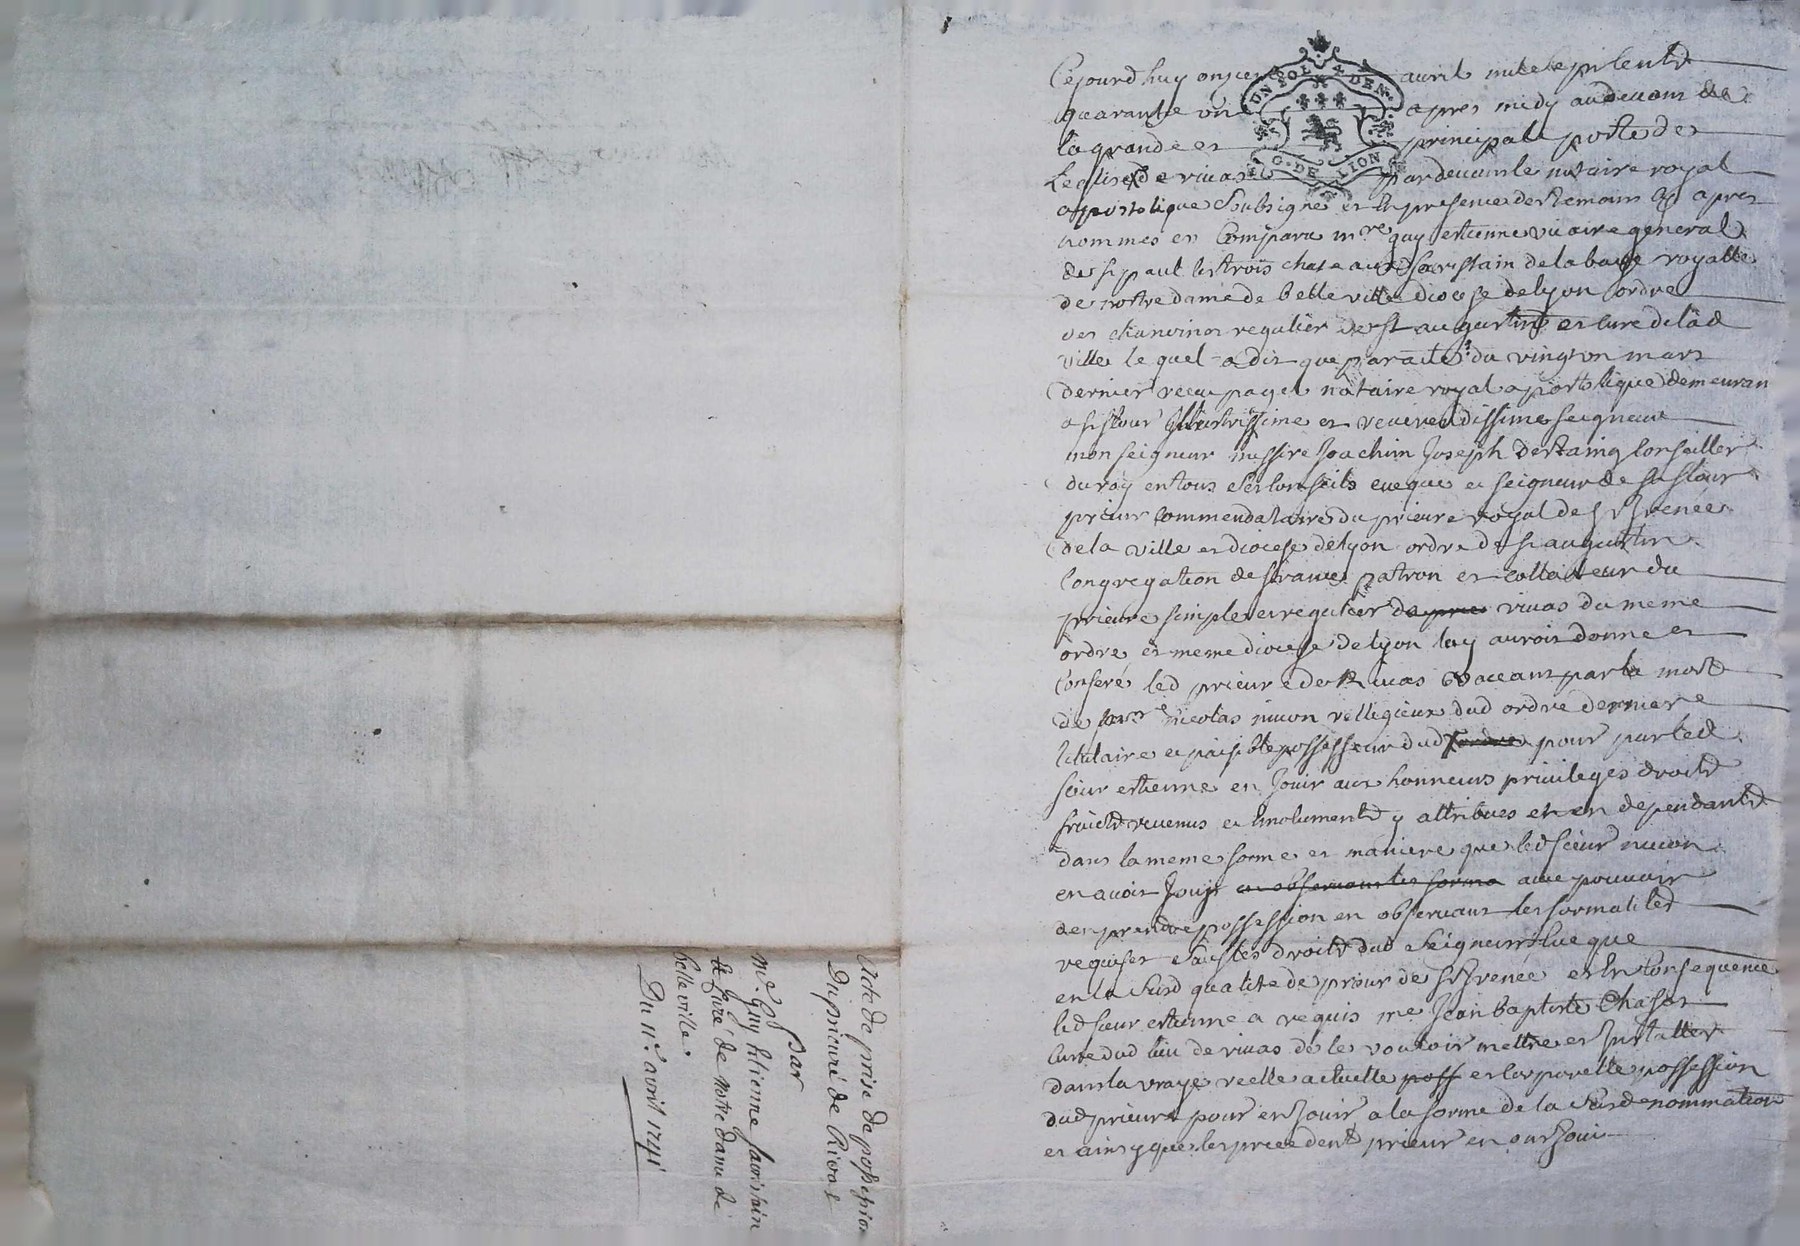 Cejourdhuy onzie avril mil sept cents
quarante un apres midy audevant de
la grande et principale porte de
Leglise de rivas pardevant le notaire royal
apostolique soubsigné et en presence des temoins cy apres
nommes est comparu mre guy estienne vicaire general
de st paul les trois chateaux sacristain de labaye royalle
de nostre dame de belleville diocese de lyon ordre
des chanoines regulier de st augustin et curé de lad
ville lequel a dit que par acte du vingt un mars
dernier receu paget notaire royal apostolique demeuran
a st flour Illustrissime et reverendissime seigneur
monseigneur messire Joachim Joseph destaing conseiller
du roy en tous ses conseils eveque et seigneur de st flour
prieur commendataire du prieuré royal de st Irenée
de la ville et diocese de lyon ordre de st augustin
Congregation de france patron et collateur du
prieuré simple et regulier de rivas du meme
ordre et meme diocese de lyon luy auroit donné et
Conferé led prieuré de Rivas vaccant par la mort
de mre nicolas religieux dud ordre derniere
titulaire et paisible possesseur dud ordre pour par led
sieur estienne en Jouir aux honneurs privileges droits
fruicts revenus et emoluments y attribues et en dependants
dans la meme forme et maniere que led sieur
en avoit Jouy en observant les forma avec pouvoir
den prendre possession en observant les formalités
requises sauf les droits dud seigneur Eveque
en la susd qualité de prieur de st Irenée et En Consequence
led sieur estienne a requis me Jean baptiste Chaser
curé dud lieu de rivas de le vouloir mettre et Installer
dans la vraye reelle actuelle poss et corporelle possession
dud prieuré pour en Jouir a la forme de la susd nommination
et ainsy que les precedents prieur en ont Joui
Acte de prise de possession
Du prieuré de Rivas
Par
Me. Guy Etienne sacristain
& Curé de Notre dame de
belleville.
Du 11e. avril 1741
UN SOL 4 DEN.
G. DE LION